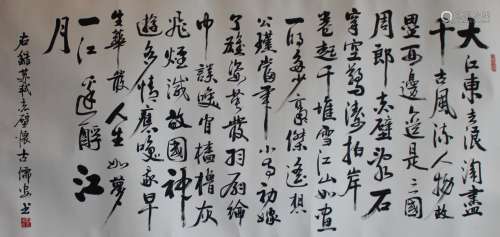 大江東去浪淘盡
千古風流人物故
壘西邊人道是三國
周郎赤壁亂石
穿空驚濤拍岸
卷起千堆雪江山如畫
一時多少豪傑遙想
公瑾當年小喬初嫁
了雄姿英發羽扇綸
巾談笑間檣櫓灰
飛煙滅故國神
遊多情應笑我早
生華髮人生如夢
一江還酹江
月
右錄蘇軾赤壁懷古 書